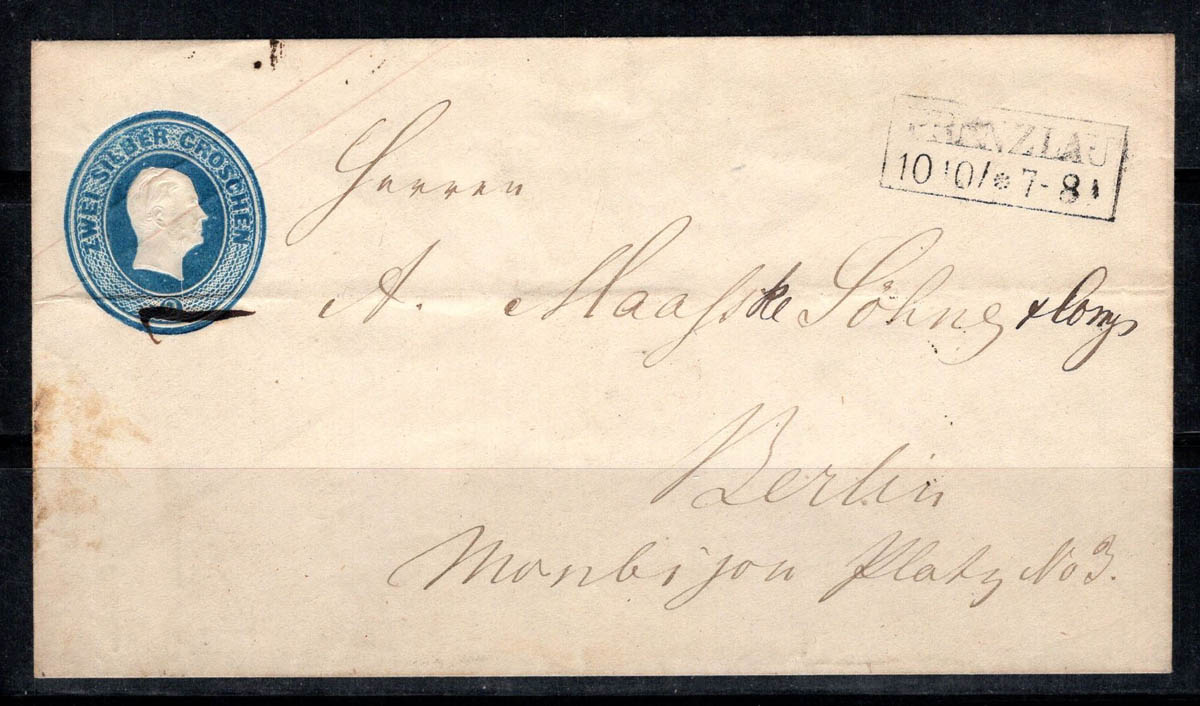 ZWEI SILBER GROSCHEN
PRENZLAU
10 10/ * 7-8
Herren
A. Maaſske Söhne & Comp
Berlin
Monbijou Platz No 3.